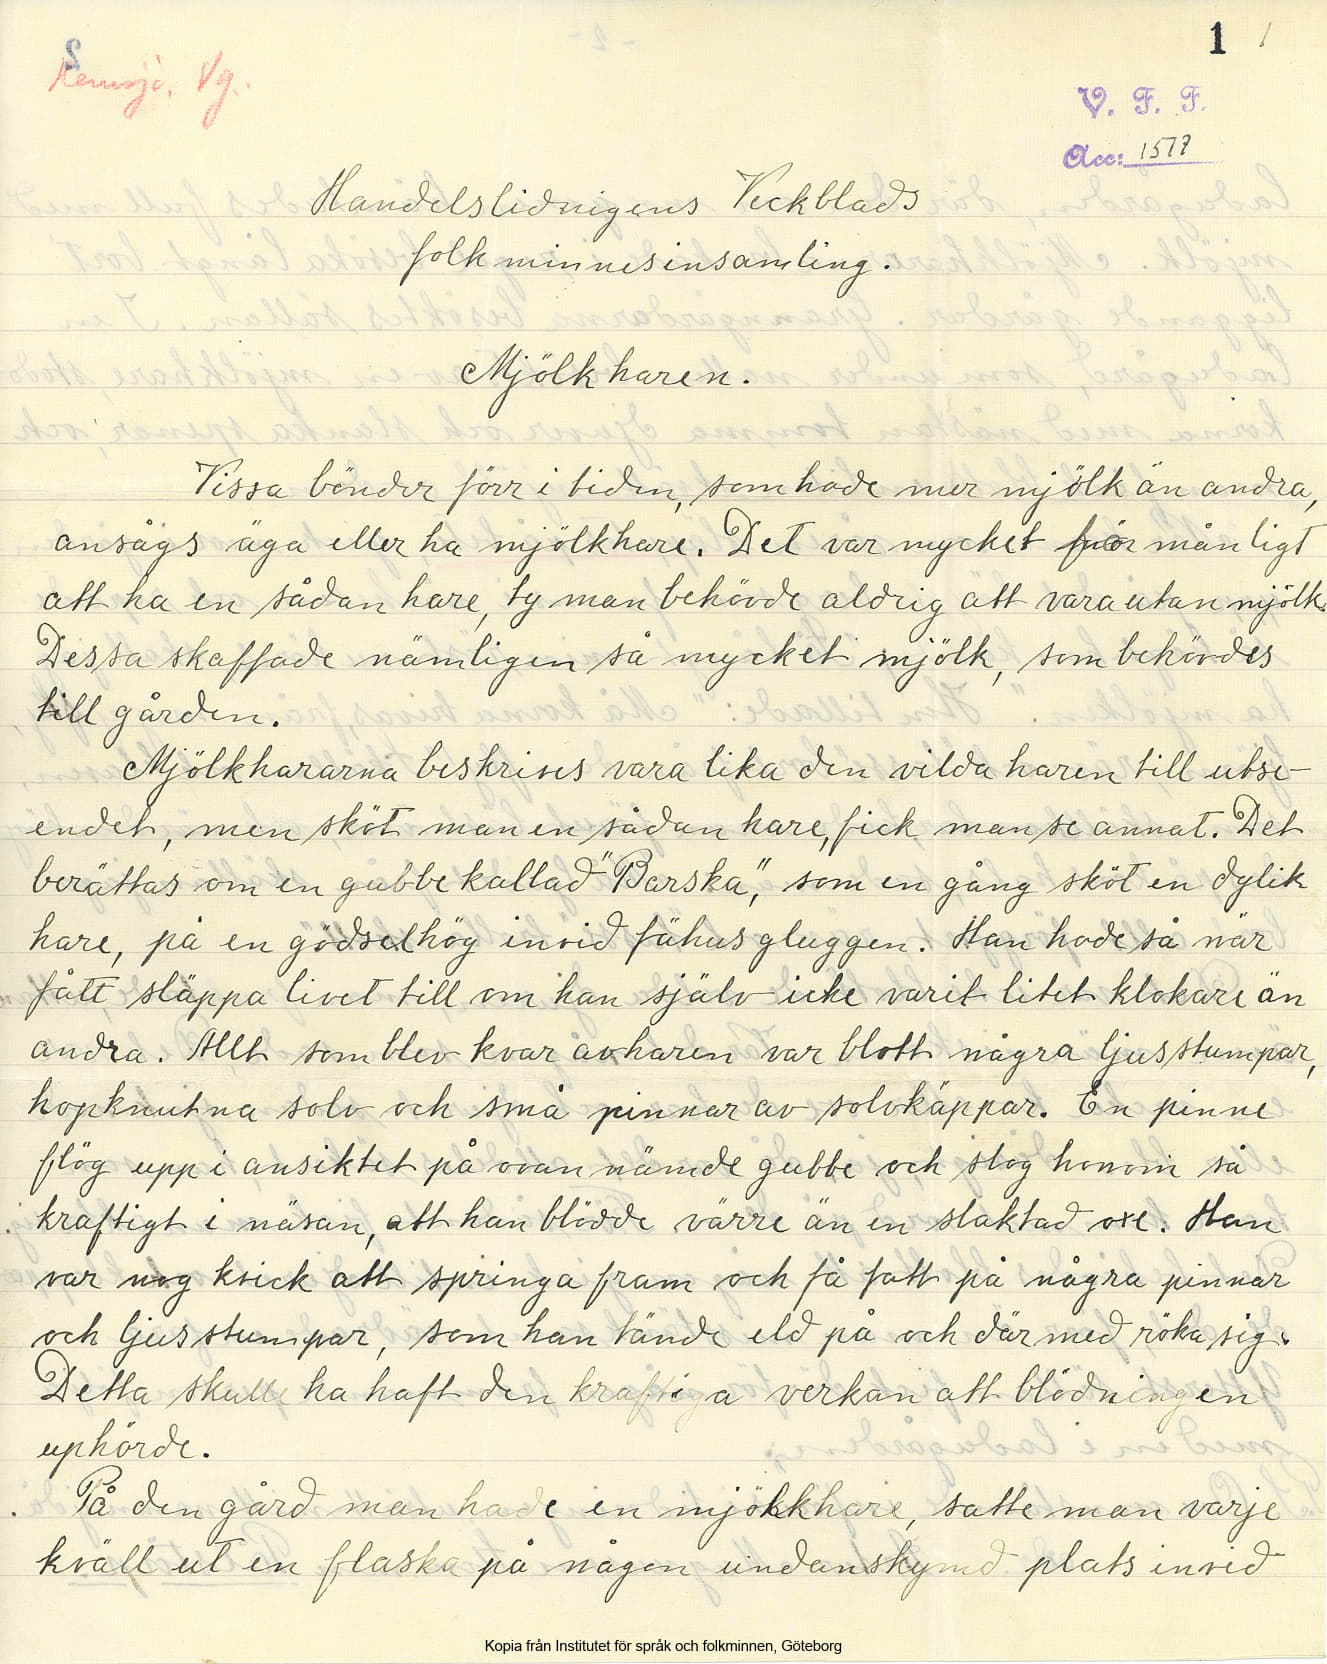 1 1
S
Kemsjö, Vg.
V. F. F.
Acc: 1577
Handelstidnigens Veckblads
folkminnesinsamling.
Mjölkharen.
Vissa bönder förr i tiden, som hade mer mjölk än andra,
ansågs äga eller ha mjölkhare. Det var mycket förmånligt
att ha en sådan hare, ty man behövde aldrig att vara utan mjölk.
Dessa skaffade nämligen så mycket mjölk, som behövdes
till gården.
Mjölkhararna beskrives vara lika den vilda haren till utse-
endet, men sköt man en sådan hare, fick man se annat. Det
berättas om en gubbe kallad "Barska", som en gång sköt en dylik
hare, på en gödselhög invid fähusgluggen. Han hade så när
fått släppa livet till om han själv icke varit litet klokare än
andra. Allt som blev kvar av haren var blott några ljusstumpar,
hopknutna solv och små pinnar av solvkäppar. En pinne
flög upp i ansiktet på ovannämde gubbe och slog honom så
kraftigt i näsan, att han blödde värre än en slaktad oxe. Han
var nog kvick att springa fram och få fatt på några pinnar
och ljusstumpar, som han tände eld på och därmed röka sig.
Detta skulle ha haft den kraftiga verkan att blödningen
uphörde.
På den gård man hade en mjölkhare, satte man varje
kväll ut en flaska på någon undanskymd plats invid
Kopia från Institutet för språk och folkminnen, Göteborg